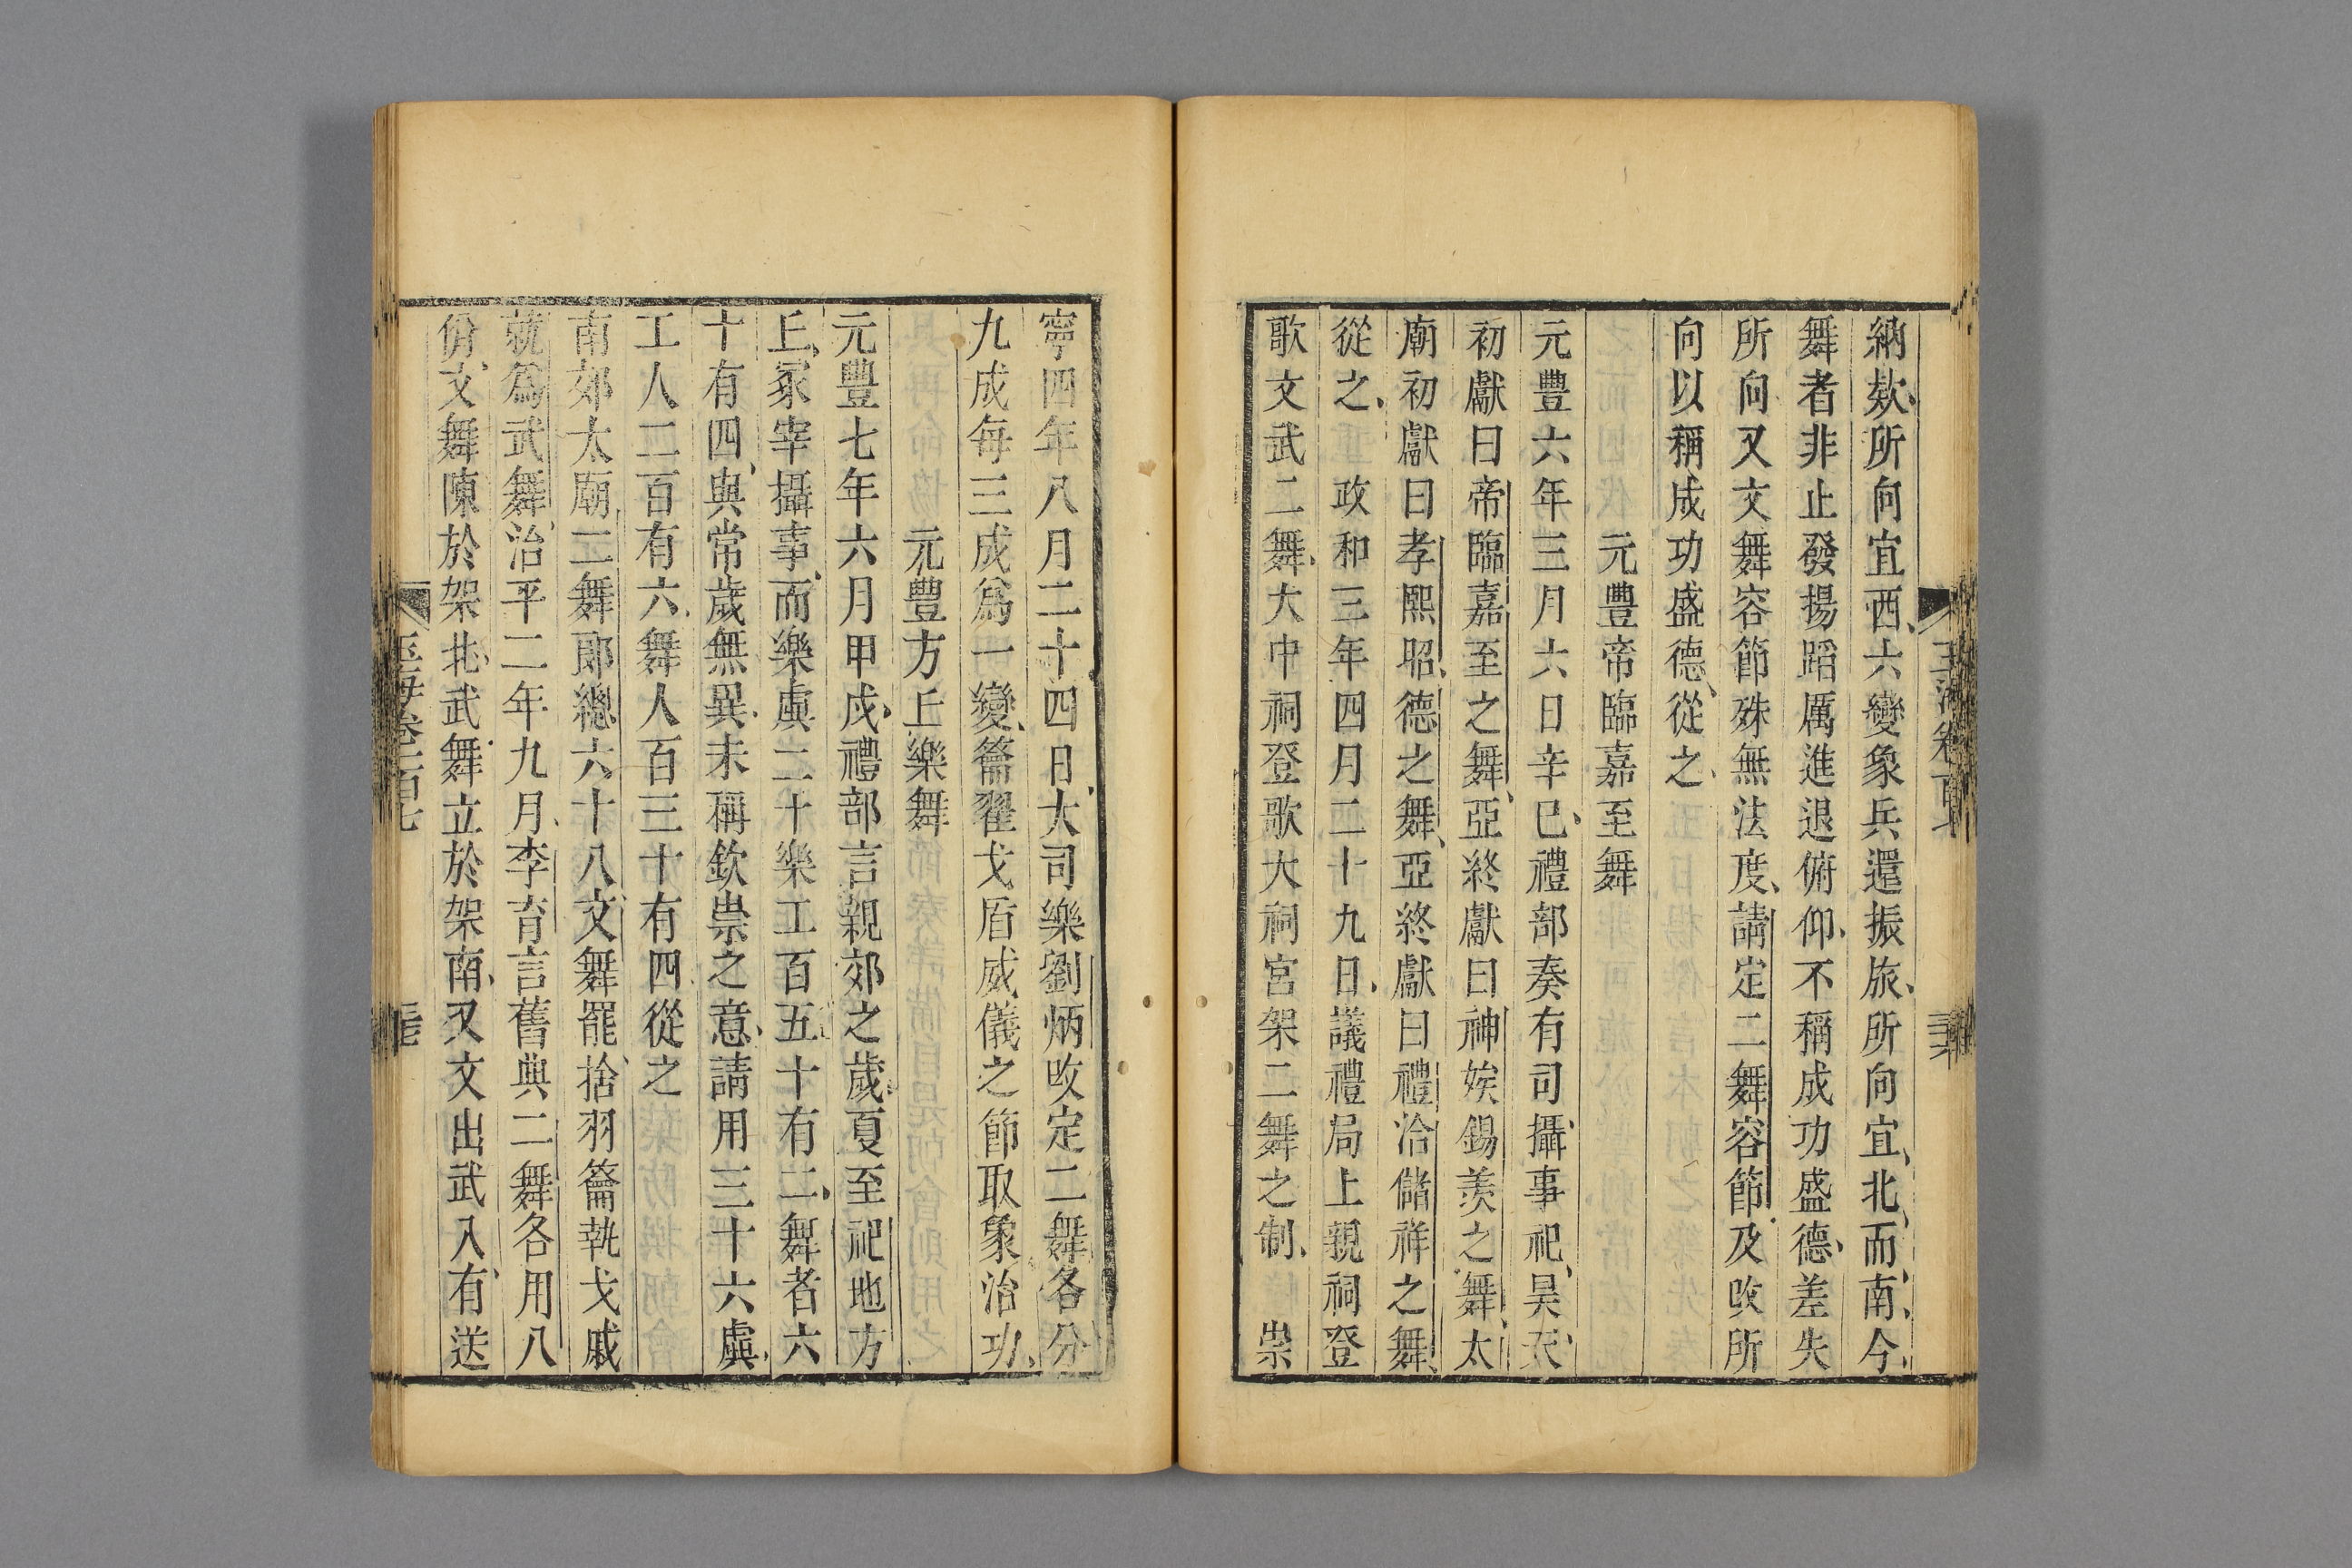 納欵所向宜西六變象兵還振旅所向宜北而南今
舞者非止發揚蹈厲進退俯仰不稱成功盛德差失
所向又文舞容節殊無法度請定二舞容節及改所
向以稱成功盛德從之
元豐帝臨嘉至舞
元豐六年三月六日辛巳禮部奏有司攝事祀昊天
初獻曰帝臨嘉至之舞亞終獻曰神娭錫羨之舞太
廟初獻曰孝熙昭德之舞亞終獻曰禮洽儲祥之舞
從之 政和三年四月二十九日議禮局上親祠登
歌文武二舞大中祠登歌大祠宮架二舞之制 崇
寧四年八月二十四日大司樂劉炳改定二舞各分
九成每三成爲一變籥翟戈盾威儀之節取象治功
元豐方丘樂舞
元豐七年六月甲戌禮部言親郊之歲夏至祀地方
丘冢宰攝事而樂虡二十樂工百五十有二舞者六
十有四與常歲無異未稱欽崇之意請用三十六虡
工人二百有六舞人百三十有四從之
南郊太廟二舞郎總六十八文舞罷捨羽籥執戈戚
就爲武舞治平二年九月李育言舊典二舞各用八
佾文舞陳於架北武舞立於架南又文出武入有送
玉海卷一百七